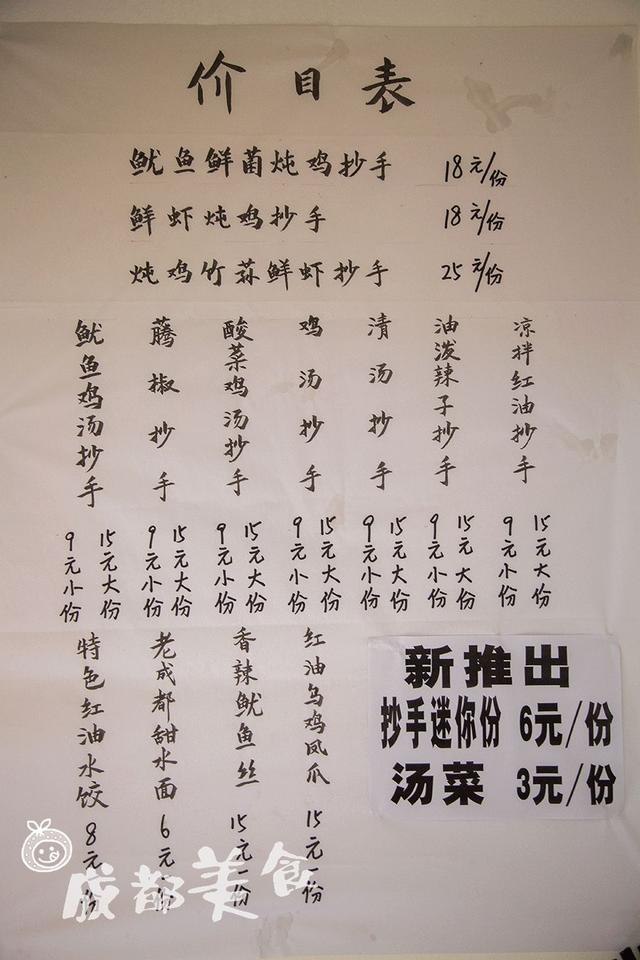 价目表
鱿鱼鲜菌炖鸡抄手 18元/份
鲜虾炖鸡抄手 18元/份
炖鸡竹荪鲜虾抄手 25元/份
凉拌红油抄手
15元大份
9元小份
油泼辣子抄手
15元大份
9元小份
清汤抄手
15元大份
9元小份
鸡汤抄手
15元大份
9元小份
酸菜鸡汤抄手
15元大份
9元小份
藤椒抄手
15元大份
9元小份
鱿鱼鸡汤抄手
15元大份
9元小份
红油乌鸡凤爪 15元一份
香辣鱿鱼丝 15元一份
老成都甜水面 6元一份
特色红油水饺 8元一份
新推出
抄手迷你份 6元/份
汤菜 3元/份
成都美食